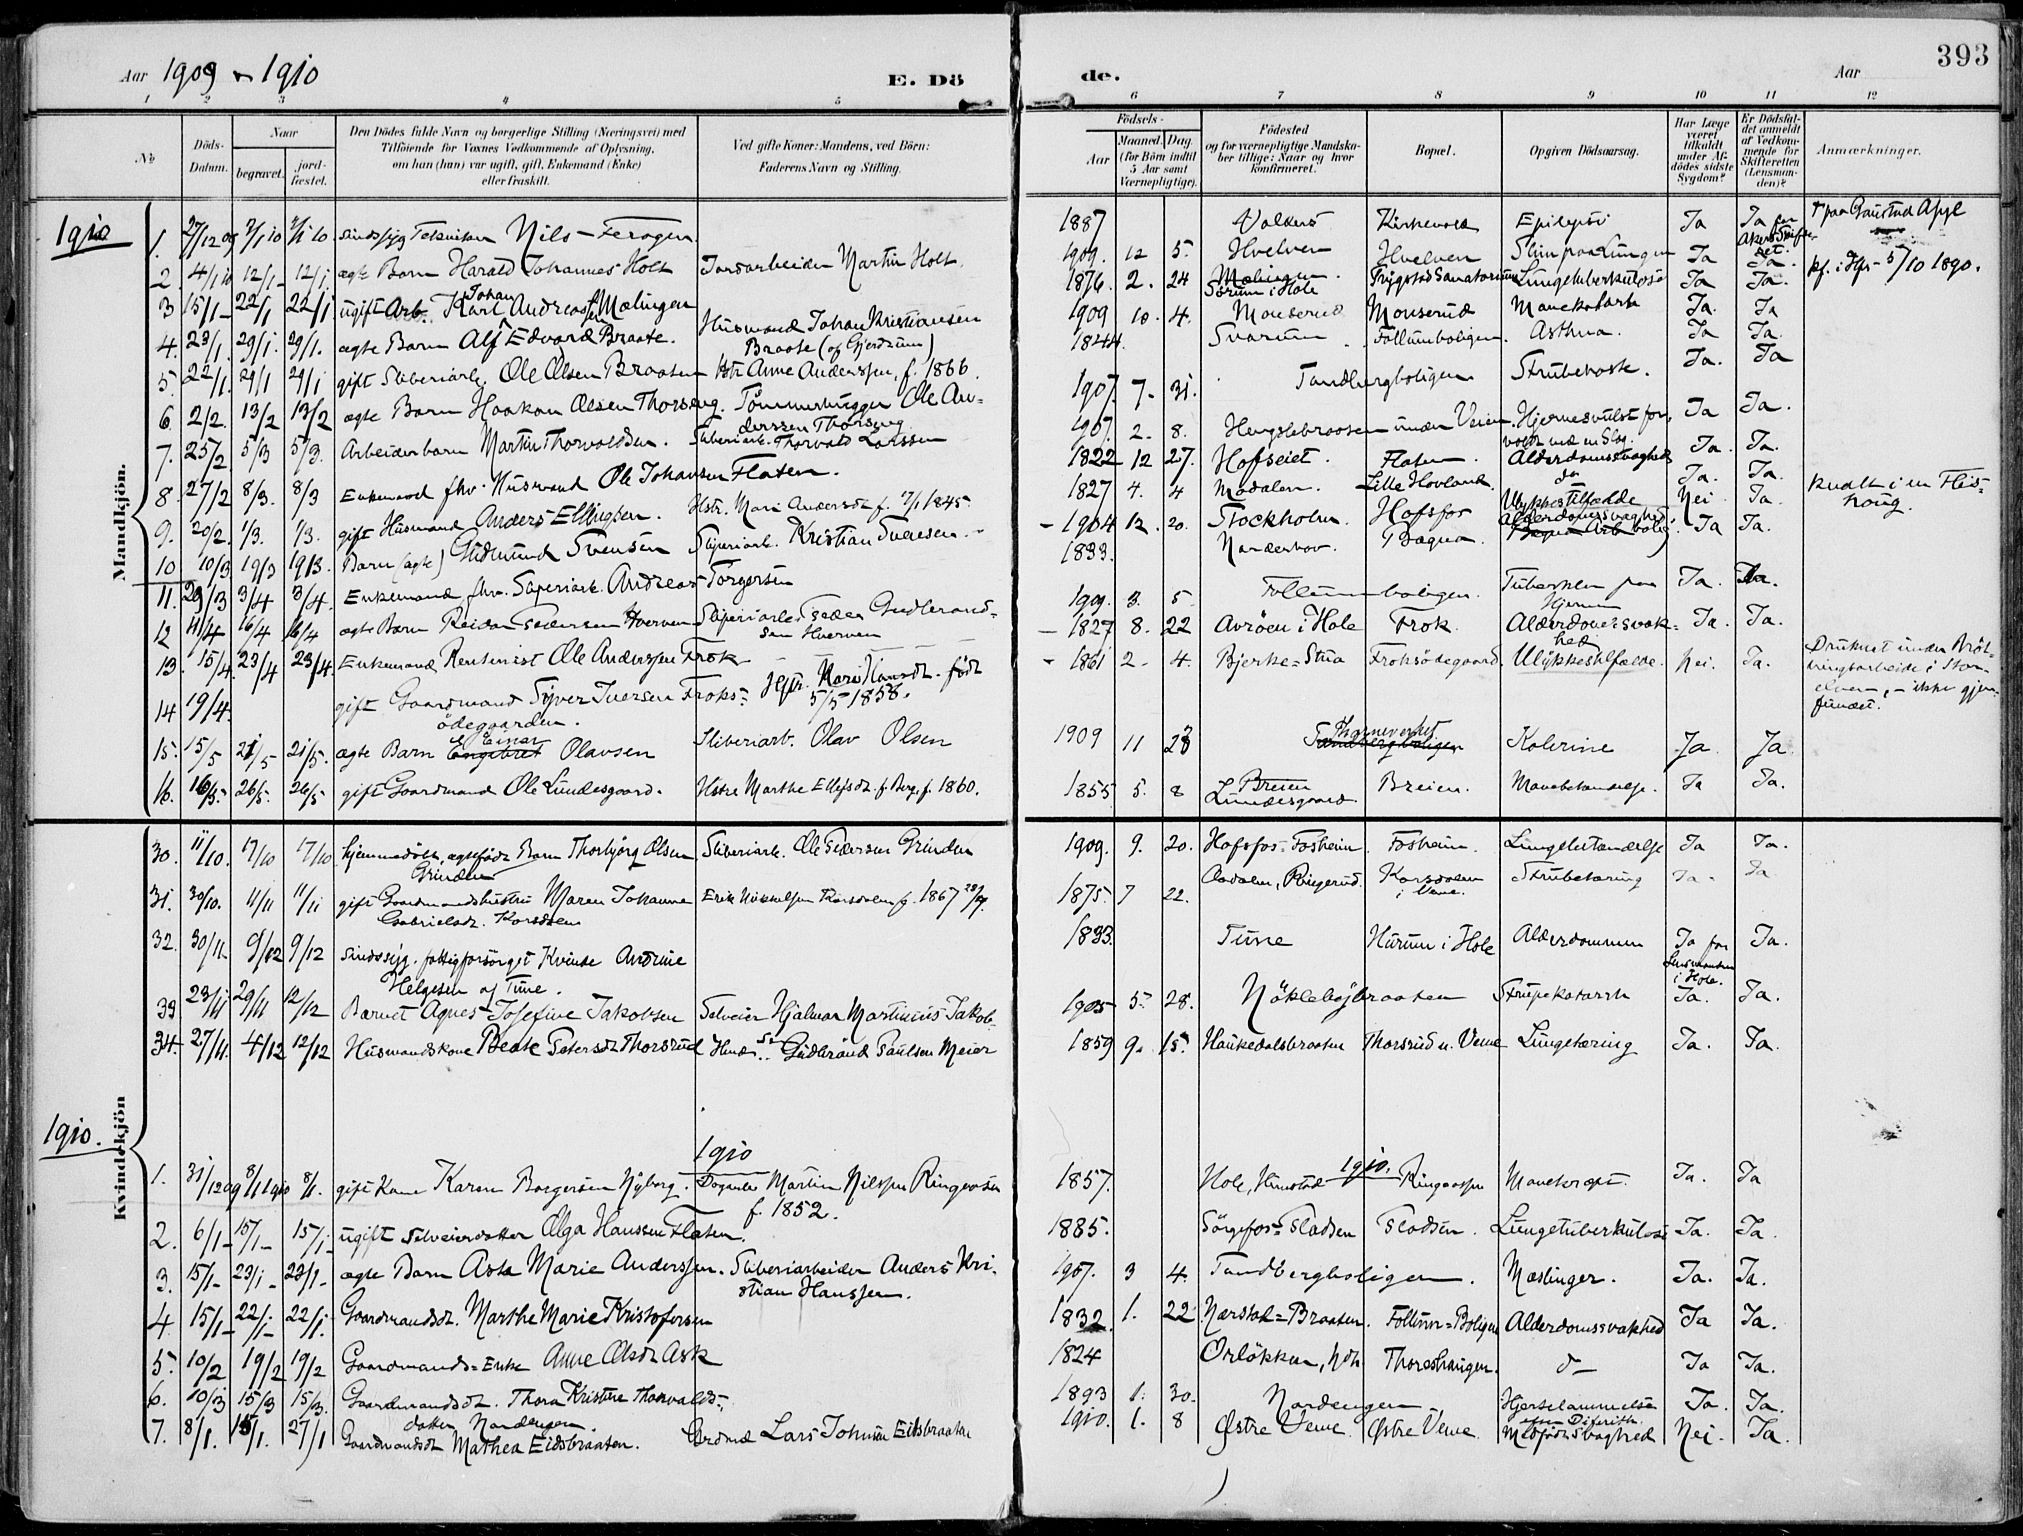 Aar 1909 - 1910
E. Dö
de.
Aar
393
1 2 3 4 5 6 7 8 9 10 11 12
No
Döds-
Datum.
Naar
begravet.
jord-
fæstet.
Den Dödes fulde Navn og borgerlige Stilling (Næringsvei) med
Tilföiende for Voxnes Vedkommende af Oplysning,
om han (hun) var ugift, gift, Enkemand (Enke)
eller fraskilt.
Ved gifte Koner: Mandens, ved Börn:
Faderens Navn og Stilling.
Födsels-
Aar
Maaned. Dag.
(for Börn indtil
5 Aar samt
Værnepligtige).
Födested
og for værnepligtige Mandska-
ber tillige: Naar og hvor
konfirmeret.
Bopæl.
Opgiven Dödsaarsag.
Har Læge
været
tilkaldt
under Af-
dödes sidste
Sygdom?
Er Dödsfal-
det anmeldt
af Vedkom-
mende for
Skifteretten
(Lensman-
den)?
Anmærkninger.
1910
Mandkjön.
1. 27/12 09 2/1 10 2/1 10 sindssyg Tekniker Nils Feragen 1887 Valders Kirkevold Epilepsi Ja Ja for
2. 4/1 10 12/1 12/1 ægte Barn Harald Johannes Holt Jordarbeider Martin Holt 1909. 12 5. Hvelven Hvelven Slim paa Lungen Ja Ja.
3 15/1 22/1 22/1 ugift Arb. Karl Johan Andreassen Mælingen 1876. 2. 24 Mælingen. Sörum i Hole Lungetuberkulose Ja Ja. kf. i Hfs - 5/10 1890.
4. 23/1. 29/1. 29/1. ægte Barn Alf Edvard Braate. Husmand Johan Kristiansen
Braate (of Gjerdrum) 1909 10. 4. Monserud Monserud Mavekatarh Ja. Ja
5. 22/1. 29/1 29/1 gift Sliberiarb. Ole Olsen Braaten Hstr Anne Anderssen, f. 1866. 1844. Svarum Follumboligen. Asthma. Ja Ja.
6. 2/2. 13/2 13/2 ægte Barn Haakon Olsen Thorseng. Tömmerhugger Ole An-
derssen Thorseng 1907. 7- 31. Tandbergboligen Strubehoste. Ja. Ja
7. 25/2 5/3 5/3. Arbeiderbarn Martin Thorvaldsen. Sliberiarb. Thorvald Larssen 1907. 2. 8. Hengslebraaten under Veien. Hjernesvulst for-
voldt ved en Slag. Ja Ja.
8. 27/2 8/3. 8/3 Enkemand fhv. Husmand Ole Johansen Flaten. 1822 12 27. Hofseiet. Flaten. Alderdomssvaghed Ja. Ja.
9. 20/2. 1/3. 1/3. gift Husmand Anders Ellingsen. Hstr. Mari Andersdt f. 1845. 1827 4. 4 Modalen. Lille Hovland. do Ja. Ja.
10 10/3 19/3 19/3. Barn (ægte) Gudmund Svensen Sliperiarb. Kristian Svensen - 1904 12. 20. Stockholm. Hofsfos Ulykkestilfælde Nei. Ja. kvalt i en Flis-
houg.
11. 29/3 3/4 3/4. Enkemand fhv. Sliperiarb. Andreas Torgersen 1833. Norderhov. Bægna. Alderdomssvaghed. Ja Ja.
12 11/4 16/4 16/4 ægte Barn Reidar Pedersen Hverven Sliperiarb. Peder Gudbrand-
sen Hverven 1909. 3. 5 Follumboligen. Tuberkler paa
Hjernen Ja. Ja.
13. 15/4. 23/4 23/4. Enkemand Rentenist Ole Anderssen Frok - 1827 8. 22 Avröen i Hole Frok. Alderdomssvak-
hed Ja. Ja.
14 19/4. gift Gaardmand Syver Iversen Froks-
ödegaarden. Hstr. Kari Hansdt. født
5/5 1858. - 1861 2- 4. Bjerke-Stua Froksödegaard. Ulykkestilfælde. Nei. Ja. Druknet under Bröt-
ningsarbeide i Stor-
elven, - ikke gjen-
fundet.
15. 15/5 21/5 21/5. ægte Barn Einar Olavsen Sliberiarb. Olav Olsen 1909 11 23 Kolerine Ja. Ja
16. 16/5. 26/5. 26/5 gift Gaardmand Ole Lundesgaard. Hstre Marthe Ellefsdt. f. Berg, f. 1860. 1855 5. 8 Breien
Lundesgaard Breien. Ja Ja.
Kvindekjön
30. 11/10. 17/10 17/10 hjemmedöbt, ægtefödt Barn Thorbjörg Olsen
Grinden Sliberiarb. Ole Pedersen Grinden 1909. 9. 20. Hofsfos-Fosheim Fosheim. Lungebetændelse Ja Ja.
31. 30/10. 11/11 11/11 gift Gaardmandshustru Maren Johanne
Gabrielsdt. Korsdalen Erik Mikkelsen Korsdalen f. 1867 1875. 7 22. Aadalen, Ringerud. Korsdalen
i Veme. Strubetæring Ja- Ja
32. 30/11. 9/12 9/12 Sindssyg. fattigforsörget Kvinde Andrine
Helgesen of Tune. 1833. Tune Hurum i Hole Alderdommen Ja for
Lensmanden
i Hole. Ja.
33 23/11 29/11 12/12 Barnet Agnes Josefine Jakobsen Selveier Hjalmar Martinius Jakob-
sen 1905 5. 28. Nöklebybraaten Strupekatarrh Ja. Ja.
34. 27/11. 4/12 12/12 Husmandskone Beate Petersdt Thorsrud Husm. Gudbrand Paulsen Meier 1859 9. 15. Haukedalsbraaten Thorsrud u. Veme Lungetæring Ja. Ja.
1910.
1910
1910.
1. 31/12 09 8/1 1910 8/1. gift Kone Karen Borgersen Nyborg. Martin Nilssen Ringaasen
f. 1852. 1857. Hole, Ringaasen Mavekræft. Ja. Ja
2. 6/1 15/1 15/1 ugift Selveierdatter Olga Hanssen Flaten. 1885. Sörgefos-Pladsen Pladsen. Lungetuberkulose Ja. Ja.
3. 15/1 23/1 23/1 ægte Barn Asta Marie Anderssen. Sliberiarbeider Anders Kri-
stian Hanssen. 1907. 3 4. Tandbergboligen. Mæslinger. Ja. Ja.
4. 15/1 22/1 22/1. Gaardmandsdt. Marthe Marie Kristofersen 1832. 1. 22 Nærstad-Braaten. Follum-Boligen Alderdomssvakhed Ja Ja.
5. 10/2 19/2 19/2 Gaardmands-Enke Anne Olsdt Ask 1824 Örlökken, Ndh. Thoreshaugen. do Ja Ja.
6. 10/3 15/3 15/3. Gaardmandsdt. Thora Kristine Thorvalds-
datter Nordengen 1893 1. 30. Nordengen Hjertelammelse
efter Difterith. Ja. Ja.
7. 8/1. 15/1. 27/1 Gaardmandsdt Mathea Eidsbraaten. Grdmd Lars Johnsen Eidsbraaten 1910. 1. 8 Østre Veme. Østre Veme. Medfödt Svaghed Nei. Ja.